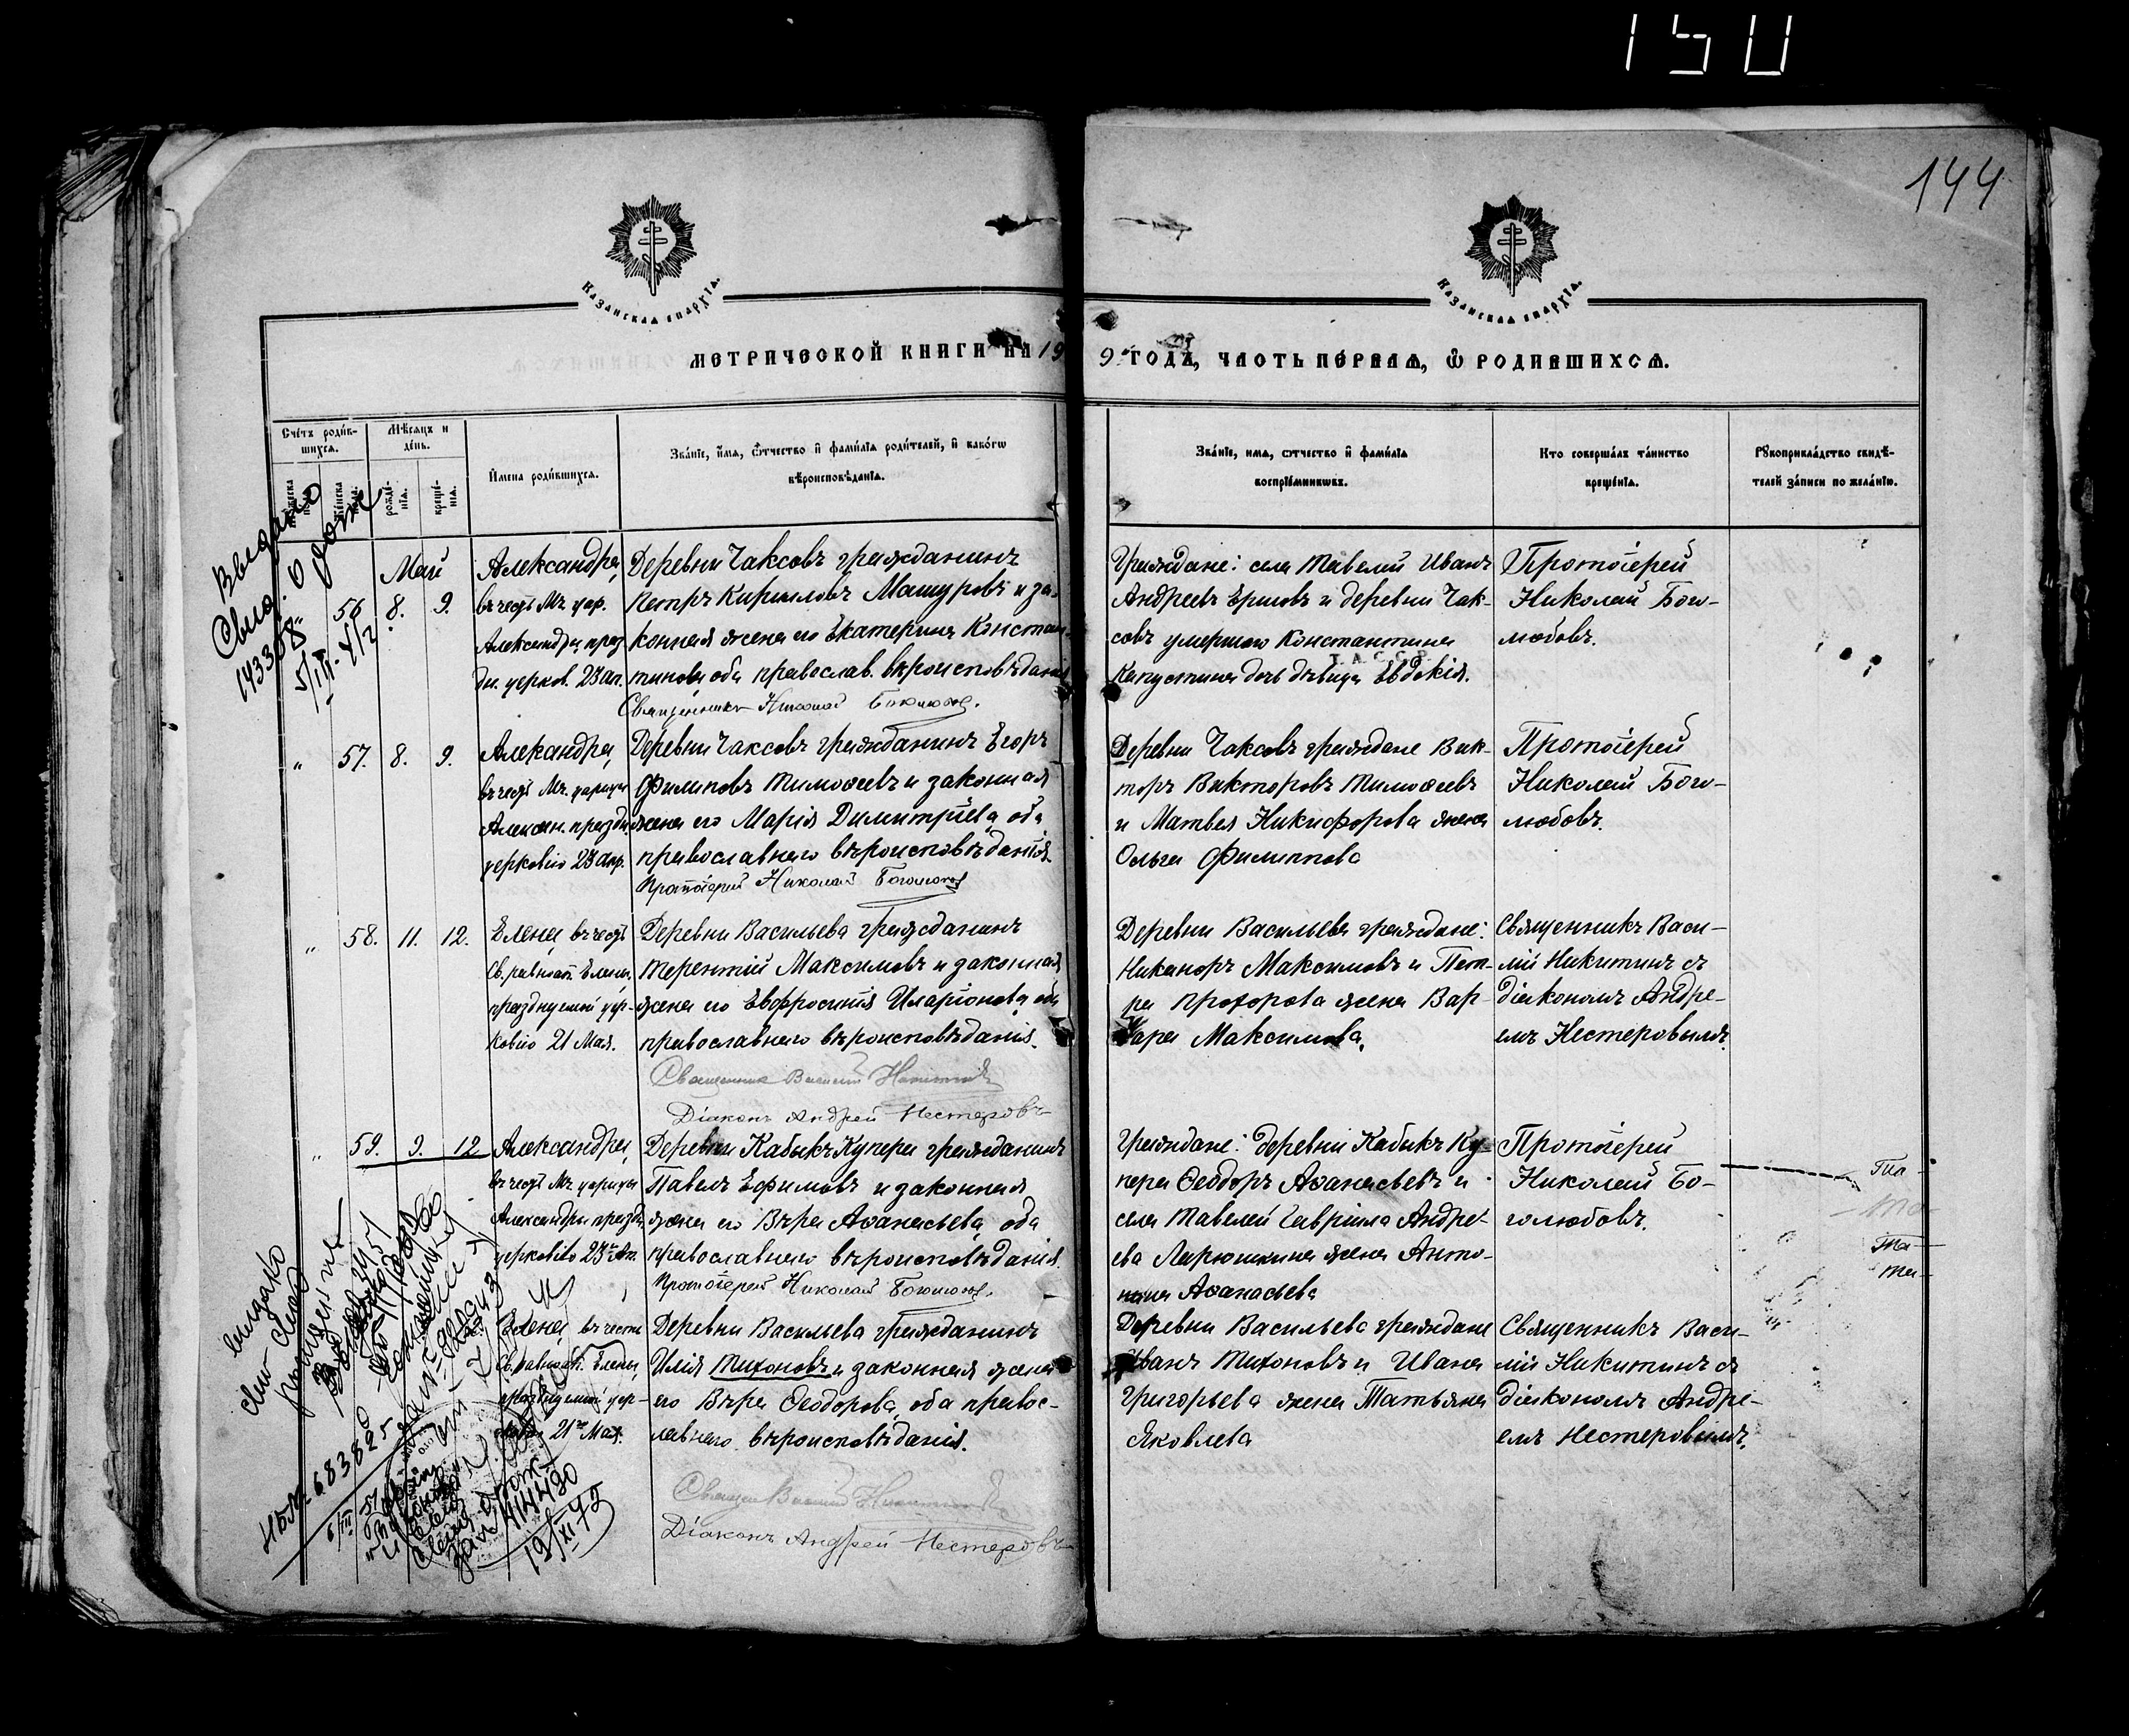 150
144
КАЗАНСКАЯ ЕПАРХІЯ.
КАЗАНСКАЯ ЕПАРХІЯ.
МЕТРИЧЕСКОЙ КНИГИ НА 19
9 ГОДЪ, ЧАСТЬ ПЕРВАЯ, Ѿ РОДИВШИХСЯ.
Счетъ родив-
шихся.
Мѣсяцъ и
день.
рожде-
нія.
креще-
нія.
Имена родившихся.
Званіе, имя, отчество и фамилія родителей, и какогѡ
вѣроисповѣданія.
Званіе, имя, отчество и фамилія
воспріемниковъ.
Кто совершалъ таинство
крещенія.
Рукоприкладство свидѣ-
телей записи по желанію.
Май
56 8. 9.
Александра,
въ честь Мц. цар.
Александры праз
дн. церков. 23 ап.
Деревни Чаксовъ гражданинъ
Петръ Кирилловъ Машуровъ и за-
конная жена его Екатерина Констан-
тинова оба православ. вѣроисповѣданія
Священникъ Николай Боголюбов.
Граждане: села Тавелей Иванъ
Андреевъ Ершовъ и деревни Чак-
совъ умершаго Константина
Капустина дочь дѣвица Евдокія.
Протоіерей
Николай Бого-
любовъ.
" 57. 8. 9.
Александра,
въ честь Мц. царицы
Алексан. праздн.
церковію 23 апр.
Деревни Чаксовъ гражданинъ Егоръ
Филиповъ Тимоѳеевъ и законная
жена его Марія Димитріева, оба
православнаго вѣроисповѣданія.
Протоіерей Николай Боголюбов
Деревни Чаксовъ граждане Вик-
торъ Викторовъ Тимоѳеевъ
и Матвея Никифорова жена
Ольга Филиппова
Протоіерей
Николай Бого-
любовъ.
" 58. 11. 12.
Елена, въ честь
Св. равноап. Елены,
празднуемой цер-
ковію 21 Мая.
Деревни Васильева гражданинъ
Терентій Максимовъ и законная
жена его Евфросинія Иларіонова, оба
православнаго вѣроисповѣданія.
Священникъ Василій Никитинъ
Діаконъ Андрей Нестеровъ
Деревни Васильева граждане:
Никаноръ Максимовъ и Пет-
ра Прохорова жена Вар-
вара Максимова.
Священникъ Васи-
лій Никитинъ съ
діакономъ Андре-
емъ Нестеровымъ.
" 59. 9. 12
Александра,
въ честь Мц. царицы
Александры праздн.
церковію 23го Ап.
Деревни Кабыкъ Купера гражданинъ
Павелъ Ефимовъ и законная
жена его Вѣра Аѳанасьева, оба
православнаго вѣроисповѣданія.
Протоіерей Николай Боголюбов.
Граждане: деревни Кабыкъ Ку-
пера Ѳеодоръ Аѳанасьевъ и
села Тавелей Гавріила Андре-
ева Ларюшкина жена Анто-
нина Аѳанасьева
Протоіерей
Николай Бо-
голюбовъ.
Елена, въ честь
Св. равноап. Елены,
празднуемой цер-
21го Мая.
Деревни Васильева гражданинъ
Илія Тихоновъ и законная жена
его Вѣра Ѳеодорова, оба правос-
лавнаго вѣроисповѣданія.
Діаконъ Андрей Нестеровъ
Деревни Васильева граждане
Иванъ Тихоновъ и Ивана
Григорьева жена Татьяна
Яковлева
Священникъ Васи-
лій Никитинъ съ
діакономъ Андре-
емъ Нестеровымъ.